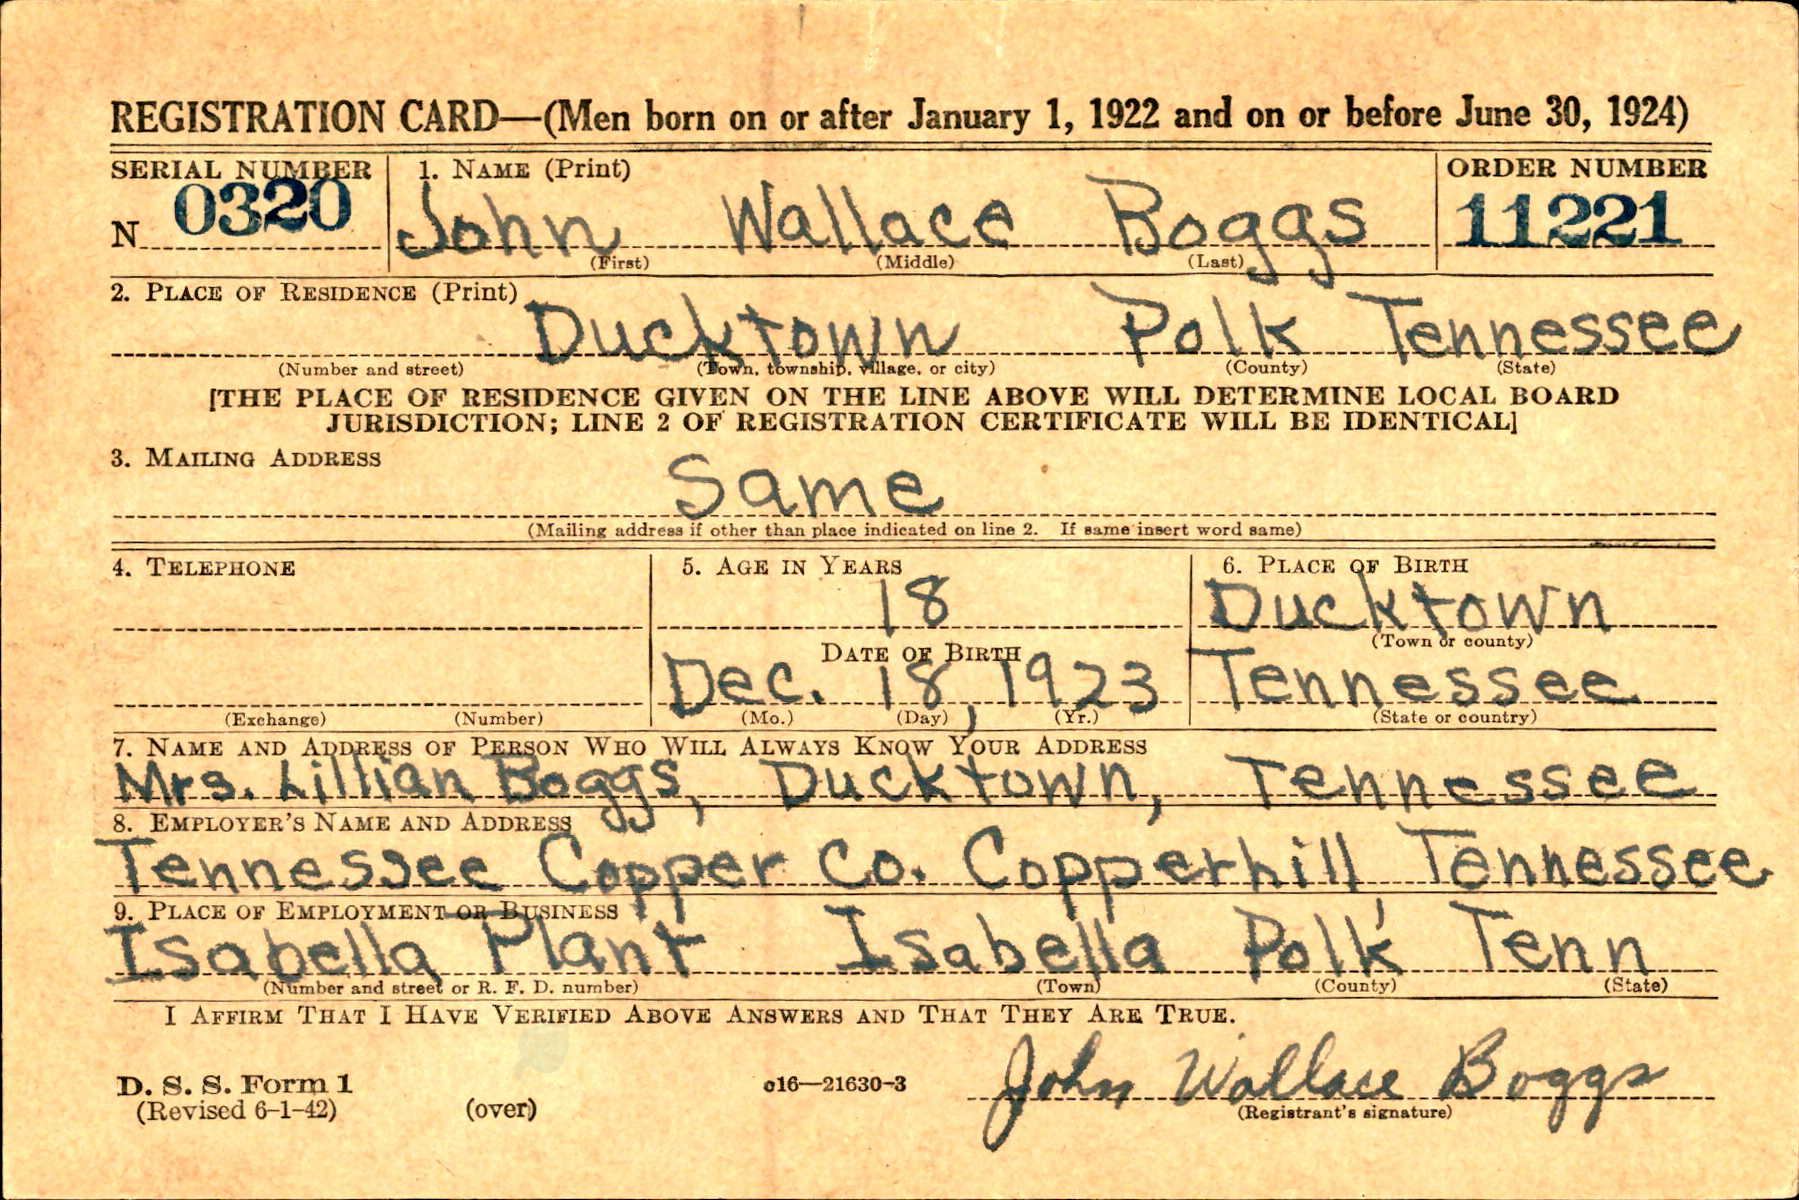 REGISTRATION CARD—(Men born on or after January 1, 1922 and on or before June 30, 1924)
SERIAL NUMBER 1. NAME (Print) ORDER NUMBER
N 0320 John Wallace Boggs 11221
(First) (Middle) (Last)
2. PLACE OF RESIDENCE (Print)
Ducktown Polk Tennessee
(Number and street) (Town, township, village, or city) (County) (State)
[THE PLACE OF RESIDENCE GIVEN ON THE LINE ABOVE WILL DETERMINE LOCAL BOARD
JURISDICTION; LINE 2 OF REGISTRATION CERTIFICATE WILL BE IDENTICAL]
3. MAILING ADDRESS
Same
(Mailing address if other than place indicated on line 2. If same insert word same)
4. TELEPHONE 5. AGE IN YEARS 6. PLACE OF BIRTH
18 Ducktown
(Town or county)
DATE OF BIRTH
Dec. 18, 1923 Tennessee
(Exchange) (Number) (Mo.) (Day) (Yr.) (State or country)
7. NAME AND ADDRESS OF PERSON WHO WILL ALWAYS KNOW YOUR ADDRESS
Mrs. Lillian Boggs, Ducktown, Tennessee
8. EMPLOYER'S NAME AND ADDRESS
Tennessee Copper Co. Copperhill, Tennessee
9. PLACE OF EMPLOYMENT OR BUSINESS
Isabella Plant Isabella Polk Tenn
(Number and street or R. F. D. number) (Town) (County) (State)
I AFFIRM THAT I HAVE VERIFIED ABOVE ANSWERS AND THAT THEY ARE TRUE.
D. S. S. Form 1 c16—21630-3 John Wallace Boggs
(Revised 6-1-42) (over) (Registrant's signature)